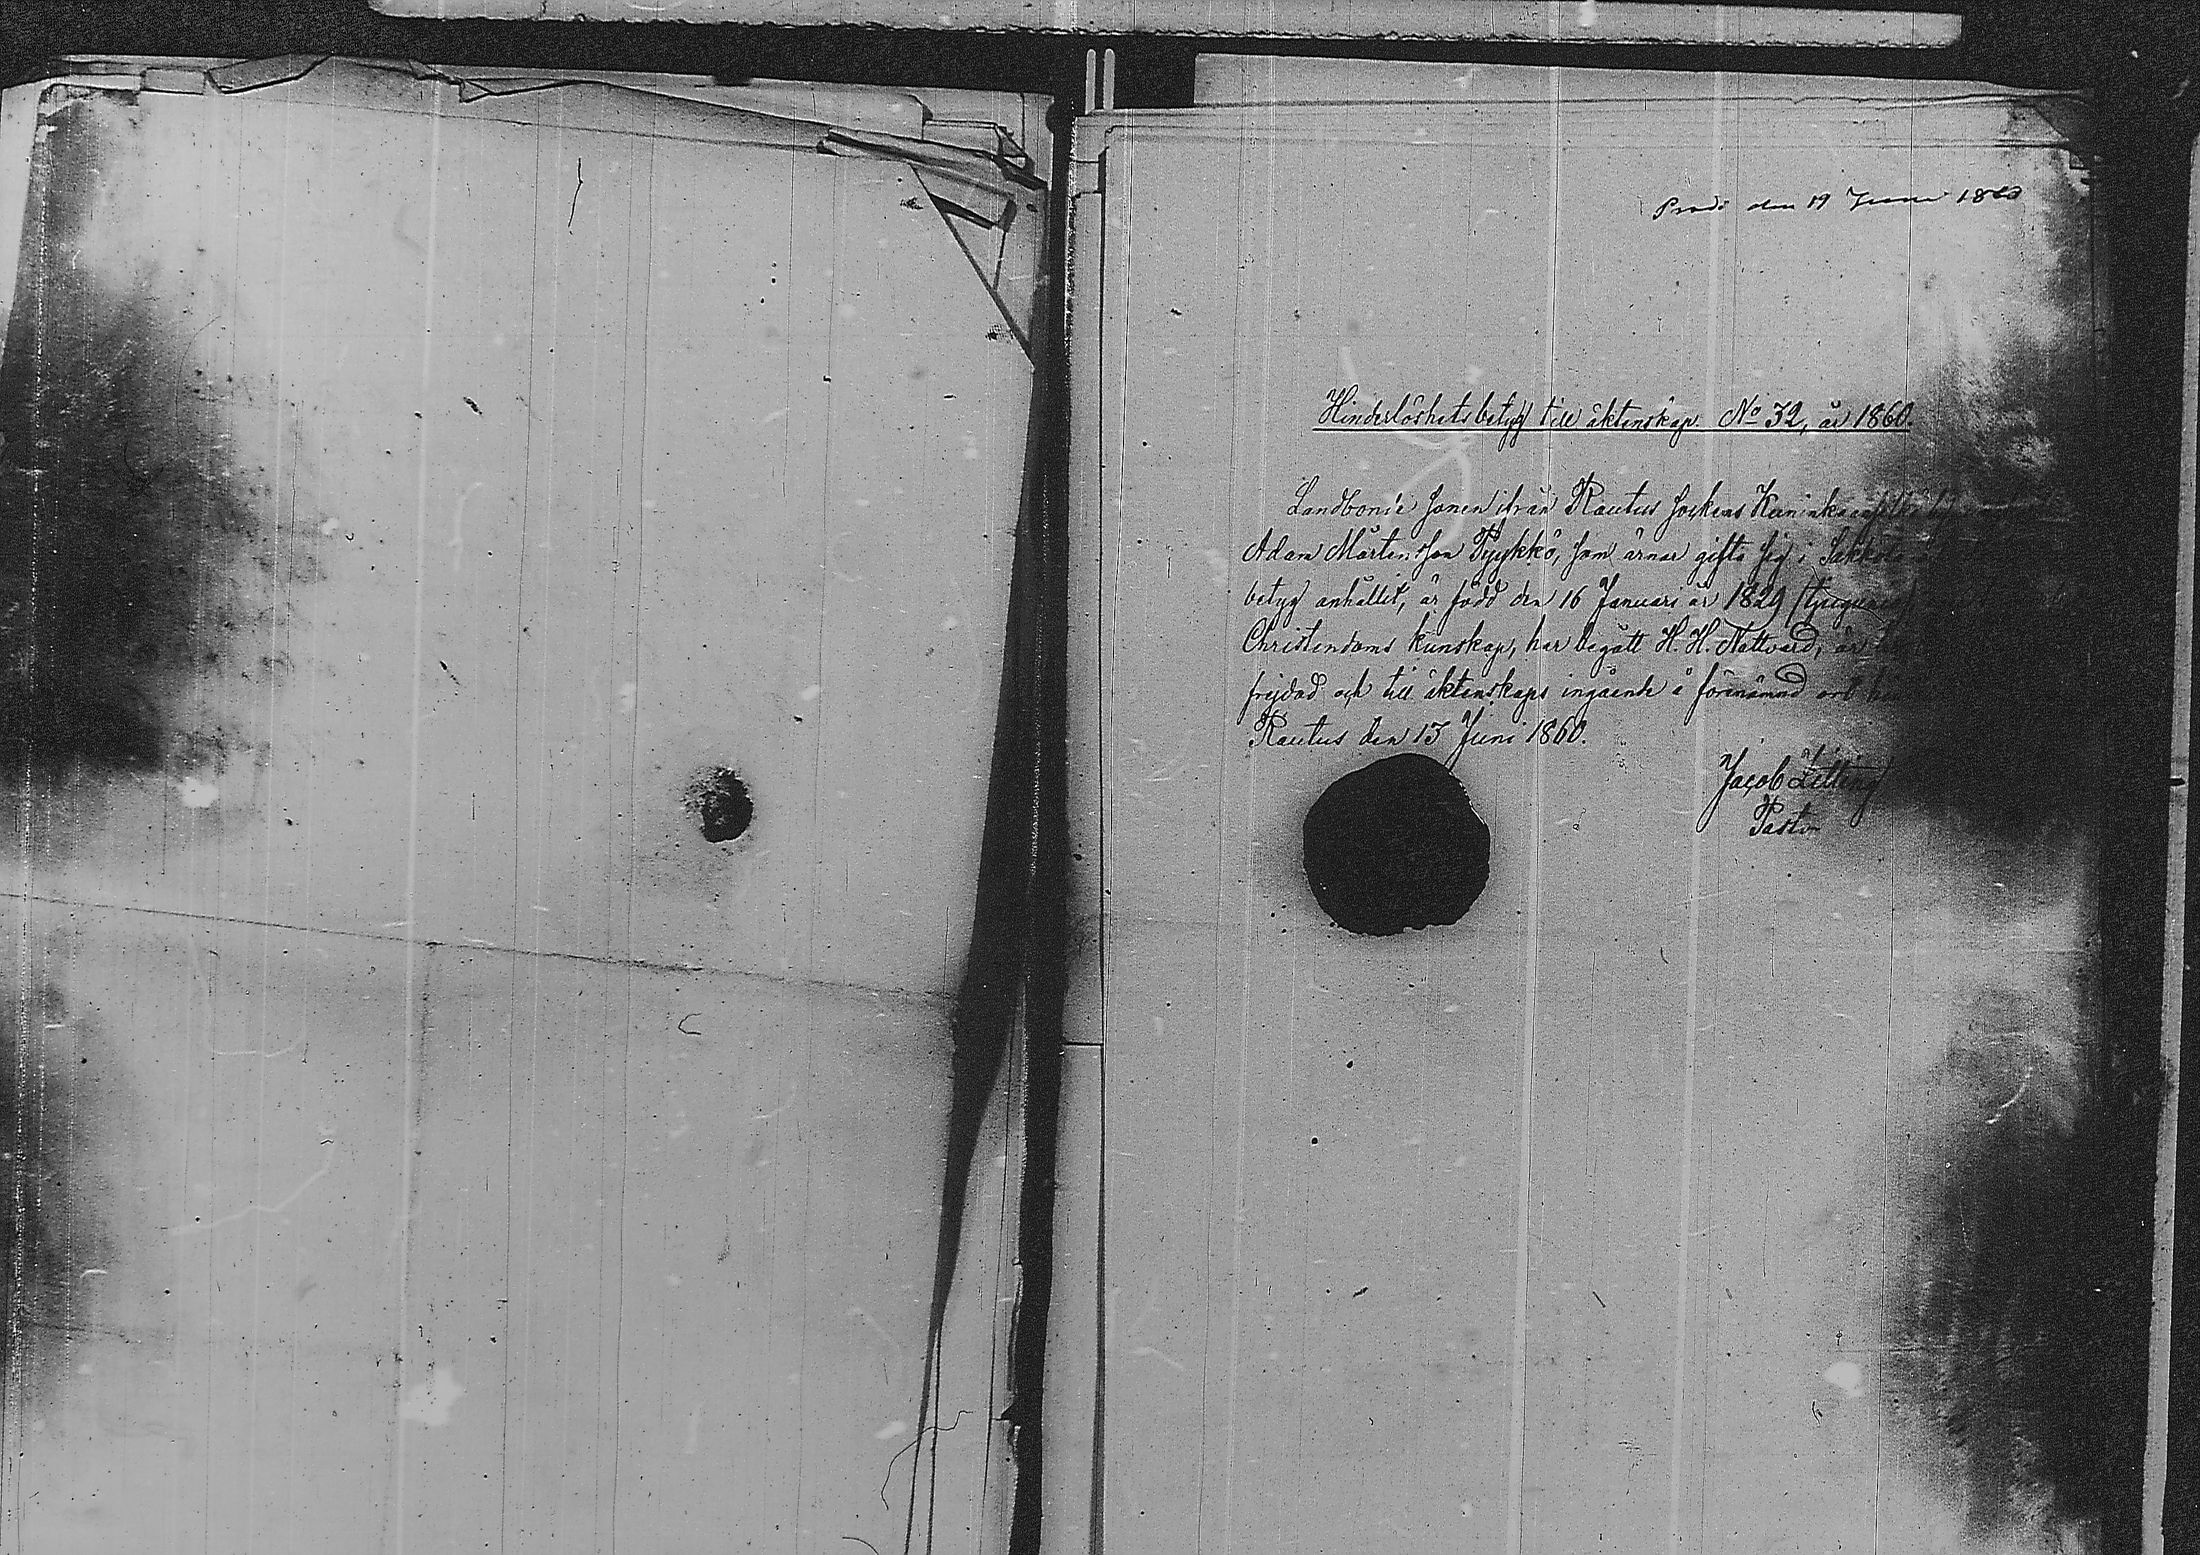 Prod: den 19 Juni 1860
Hinderlöshetsbetyg till äktenskap No 32, år 1860.
Landbonde sonen ifrån Rautus sockens
Adam Mårtensson Pyykkö, som ärnar gifta sig i Sakkola
betyg anhållit, är född den 16 Januari år 1829 (tjugunio)
Christendoms kunskap, har begått H. H. Nattvard, är
frejdad och till äktenskaps ingående å förenämnd ort
Rautus den 13 Juni 1860.
Jacob
Pastor